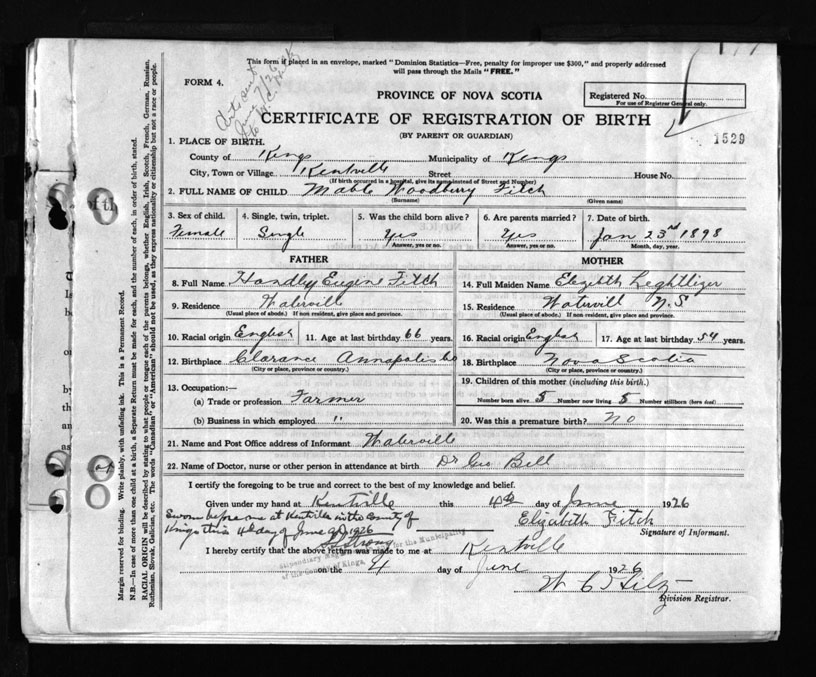 This form if placed in an envelope, marked "Dominion Statistics—Free, penalty for improper use $300," and properly addressed
will pass through the Mails "FREE."
FORM 4.
PROVINCE OF NOVA SCOTIA
Registered No.
For use of Registrar General only.
CERTIFICATE OF REGISTRATION OF BIRTH
(BY PARENT OR GUARDIAN)
1529
1. PLACE OF BIRTH.
County of Kings Municipality of Kings
City, Town or Village Kentville Street House No.
(If birth occurred in a hospital, give its name instead of Street and Number)
2. FULL NAME OF CHILD Mable Woodbury Fitch
(Surname) (Given name)
3. Sex of child. 4. Single, twin, triplet. 5. Was the child born alive? 6. Are parents married? 7. Date of birth.
Female Single Yes Yes Jan 23rd 1898
Answer, yes or no. Answer, yes or no. Month, day, year.
FATHER MOTHER
8. Full Name Handley Eugene Fitch 14. Full Maiden Name Elizabeth
9. Residence Waterville 15. Residence Watervill N.S
(Usual place of abode.) If non resident, give place and province. (Usual place of abode.) If non resident, give place and province.
10. Racial origin English 11. Age at last birthday 66 years. 16. Racial origin English 17. Age at last birthday 54 years.
12. Birthplace Clarance Annapolis Co 18. Birthplace Nova Scotia
(City or place, province or country.) (City or place, province or country.)
13. Occupation:— 19. Children of this mother (including this birth.)
(a) Trade or profession Farmer Number born alive 5 Number now living 5 Number stillborn (born dead)
(b) Business in which employed " 20. Was this a premature birth? No
21. Name and Post Office address of Informant Waterville
22. Name of Doctor, nurse or other person in attendance at birth Dr Geo Bell
I certify the foregoing to be true and correct to the best of my knowledge and belief.
Given under my hand at Kentville this 4th day of June 1926
Sworn before me at Kentville in the County of
Kings this 4th day of June AD 1926
Elizabeth Fitch
Signature of Informant.
I hereby certify that the above return was made to me at Kentville
for the Municipality
of the County of Kings.
on the 4 day of June 1926
Division Registrar.
Margin reserved for binding. Write plainly, with unfading ink. This is a Permanent Record.
N.B.—In case of more than one child at a birth, a Separate Return must be made for each, and the number of each, in order of birth, stated.
RACIAL ORIGIN will be described by stating to what people or tongue each of the parents belongs, whether English, Irish, Scotch, French, German, Russian,
Ruthenian, Slovak, Galician, etc. The words "Canadian" or "American" should not be used, as they express nationality or citizenship but not a race or people.